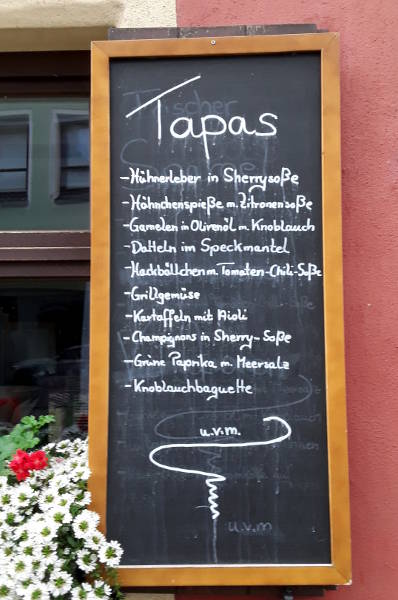 Tapas
-Hühnerleber in Sherrysoße
-Hähnchenspieße m. Zitronensoße
-Garnelen in Olivenöl m. Knoblauch
-Datteln im Speckmantel
-Hackbällchen m. Tomaten-Chili-Soße
-Grillgemüse
-Kartoffeln mit Aioli
-Champignons in Sherry-Soße
-Grüne Paprika m. Meersalz
-Knoblauchbaguette
u.v.m.
u.v.m